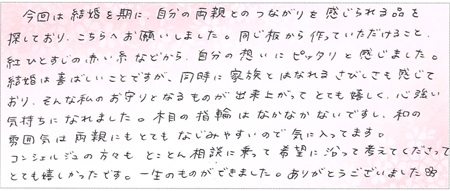 今回は結婚を期に、自分の両親とのつながりを感じられる品を
探しており、こちらへお願いしました。同じ板から作っていただけること、
紅ひとすじの赤い糸などから、自分の想いにピッタリと感じました。
結婚は喜ばしいことですが、同時に家族とはなれるさびしさも感じて
おり、そんな私のお守りとなるものが出来上がってとても嬉しく、心強い
気持ちになれました。木目の指輪はなかなかないですし、和の
雰囲気は両親にもとてもなじみやすいので気に入ってます。
コンシェルジュの方々もとことん相談に乗って希望に沿って考えてくださって
とても嬉しかったです。一生のものができました。ありがとうございました